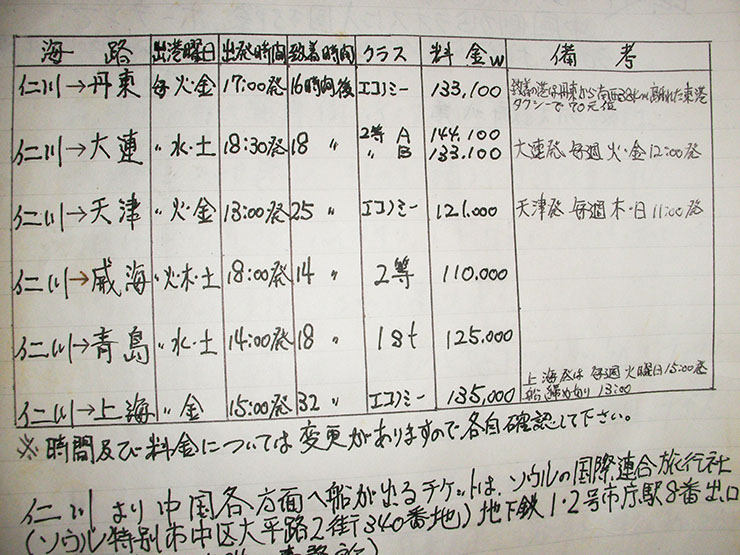 海路 出港曜日 出発時間 到着時間 クラス 料金W 備考
仁川→丹東 毎火・金 17:00発 16時間後 エコノミー 133,100 到着の港は丹東から南西38km離れた東港
タクシーで70元位
仁川→大連 〃水・土 18:30発 18 〃 2等 A 144.100 大連発 毎週 火・金 12:00発
〃 B 133.100
仁川→天津 〃火・金 13:00発 25 〃 エコノミー 121.000 天津発 毎週 木・日 11:00発
仁川→威海 〃火・木・土 18:00発 14 〃 2等 110.000
仁川→青島 〃水・土 14:00発 18 〃 1st 125.000
仁川→上海 〃金 15:00発 32 〃 エコノミー 135,000 上海発は 毎週火曜日15:00発
船 13:00
※時間及び料金については変更がありますので各自確認して下さい。
仁川より中国各方面へ船が出るチケットは、ソウルの国際連合旅行社
(ソウル特別市中区太平路2街340番地) 地下鉄1・2号市庁駅8番出口